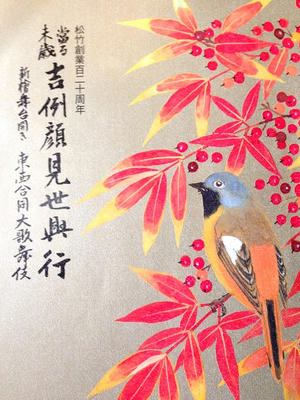 松竹創業百二十周年
當る
未歳
吉例顔見世興行
新檜舞台開き
東西合同大歌舞伎